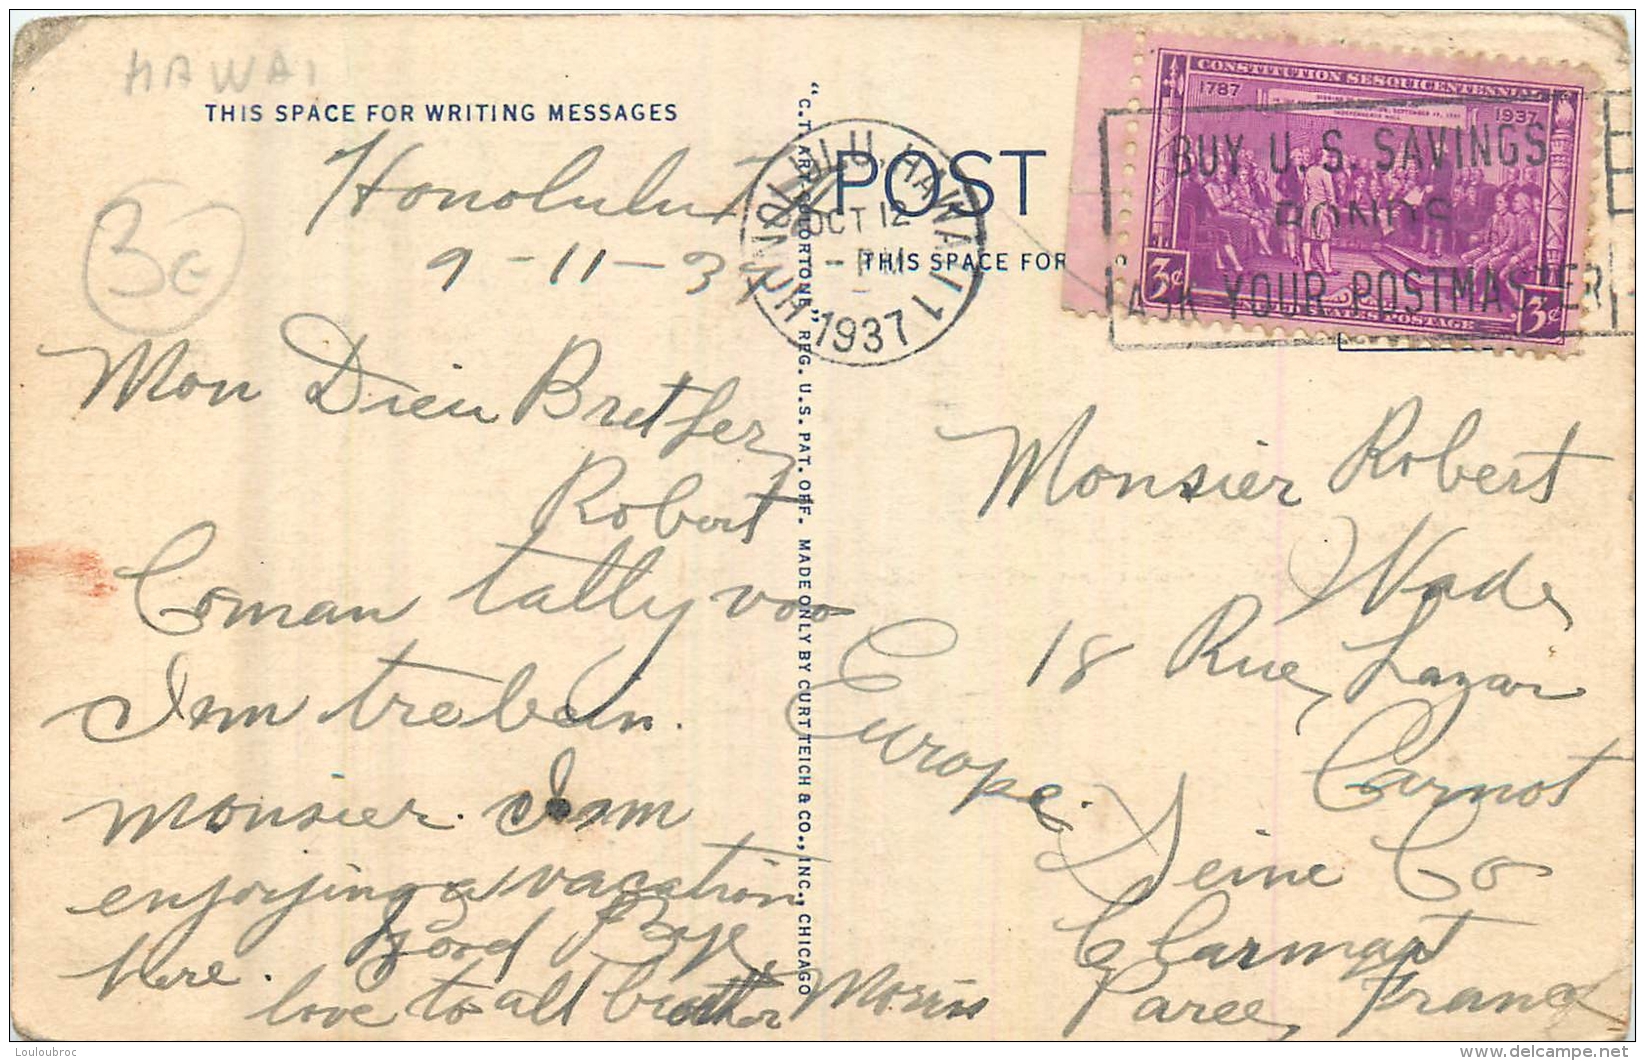 HAWAI
THIS SPACE FOR WRITING MESSAGES
3€
Honolulu
9-11-37
Mon Dieu Brether
Robert
Coman tally voo
I em trebein.
monsier. I em
enjoying a vacation
here. Good Bye
love to all brother Morris
"C.T. ART-COLORTONE" REG. U.S. PAT. OFF. MADE ONLY BY CURT TEICH & CO., INC., CHICAGO
POST
THIS SPACE FOR
HONOLULU, HAWAII
OCT 12
PM
1937
CONSTITUTION SESQUICENTENNIAL
1787
1937
3¢
3¢
UNITED STATES POSTAGE
BUY U.S. SAVINGS
BONDS
ASK YOUR POSTMASTER
Monsier Robert
Wade
18 Rue Lazar
Carnot
Europe.
Seine Co
Clarmart
Paree, France
Louloubroc
delcampe.net